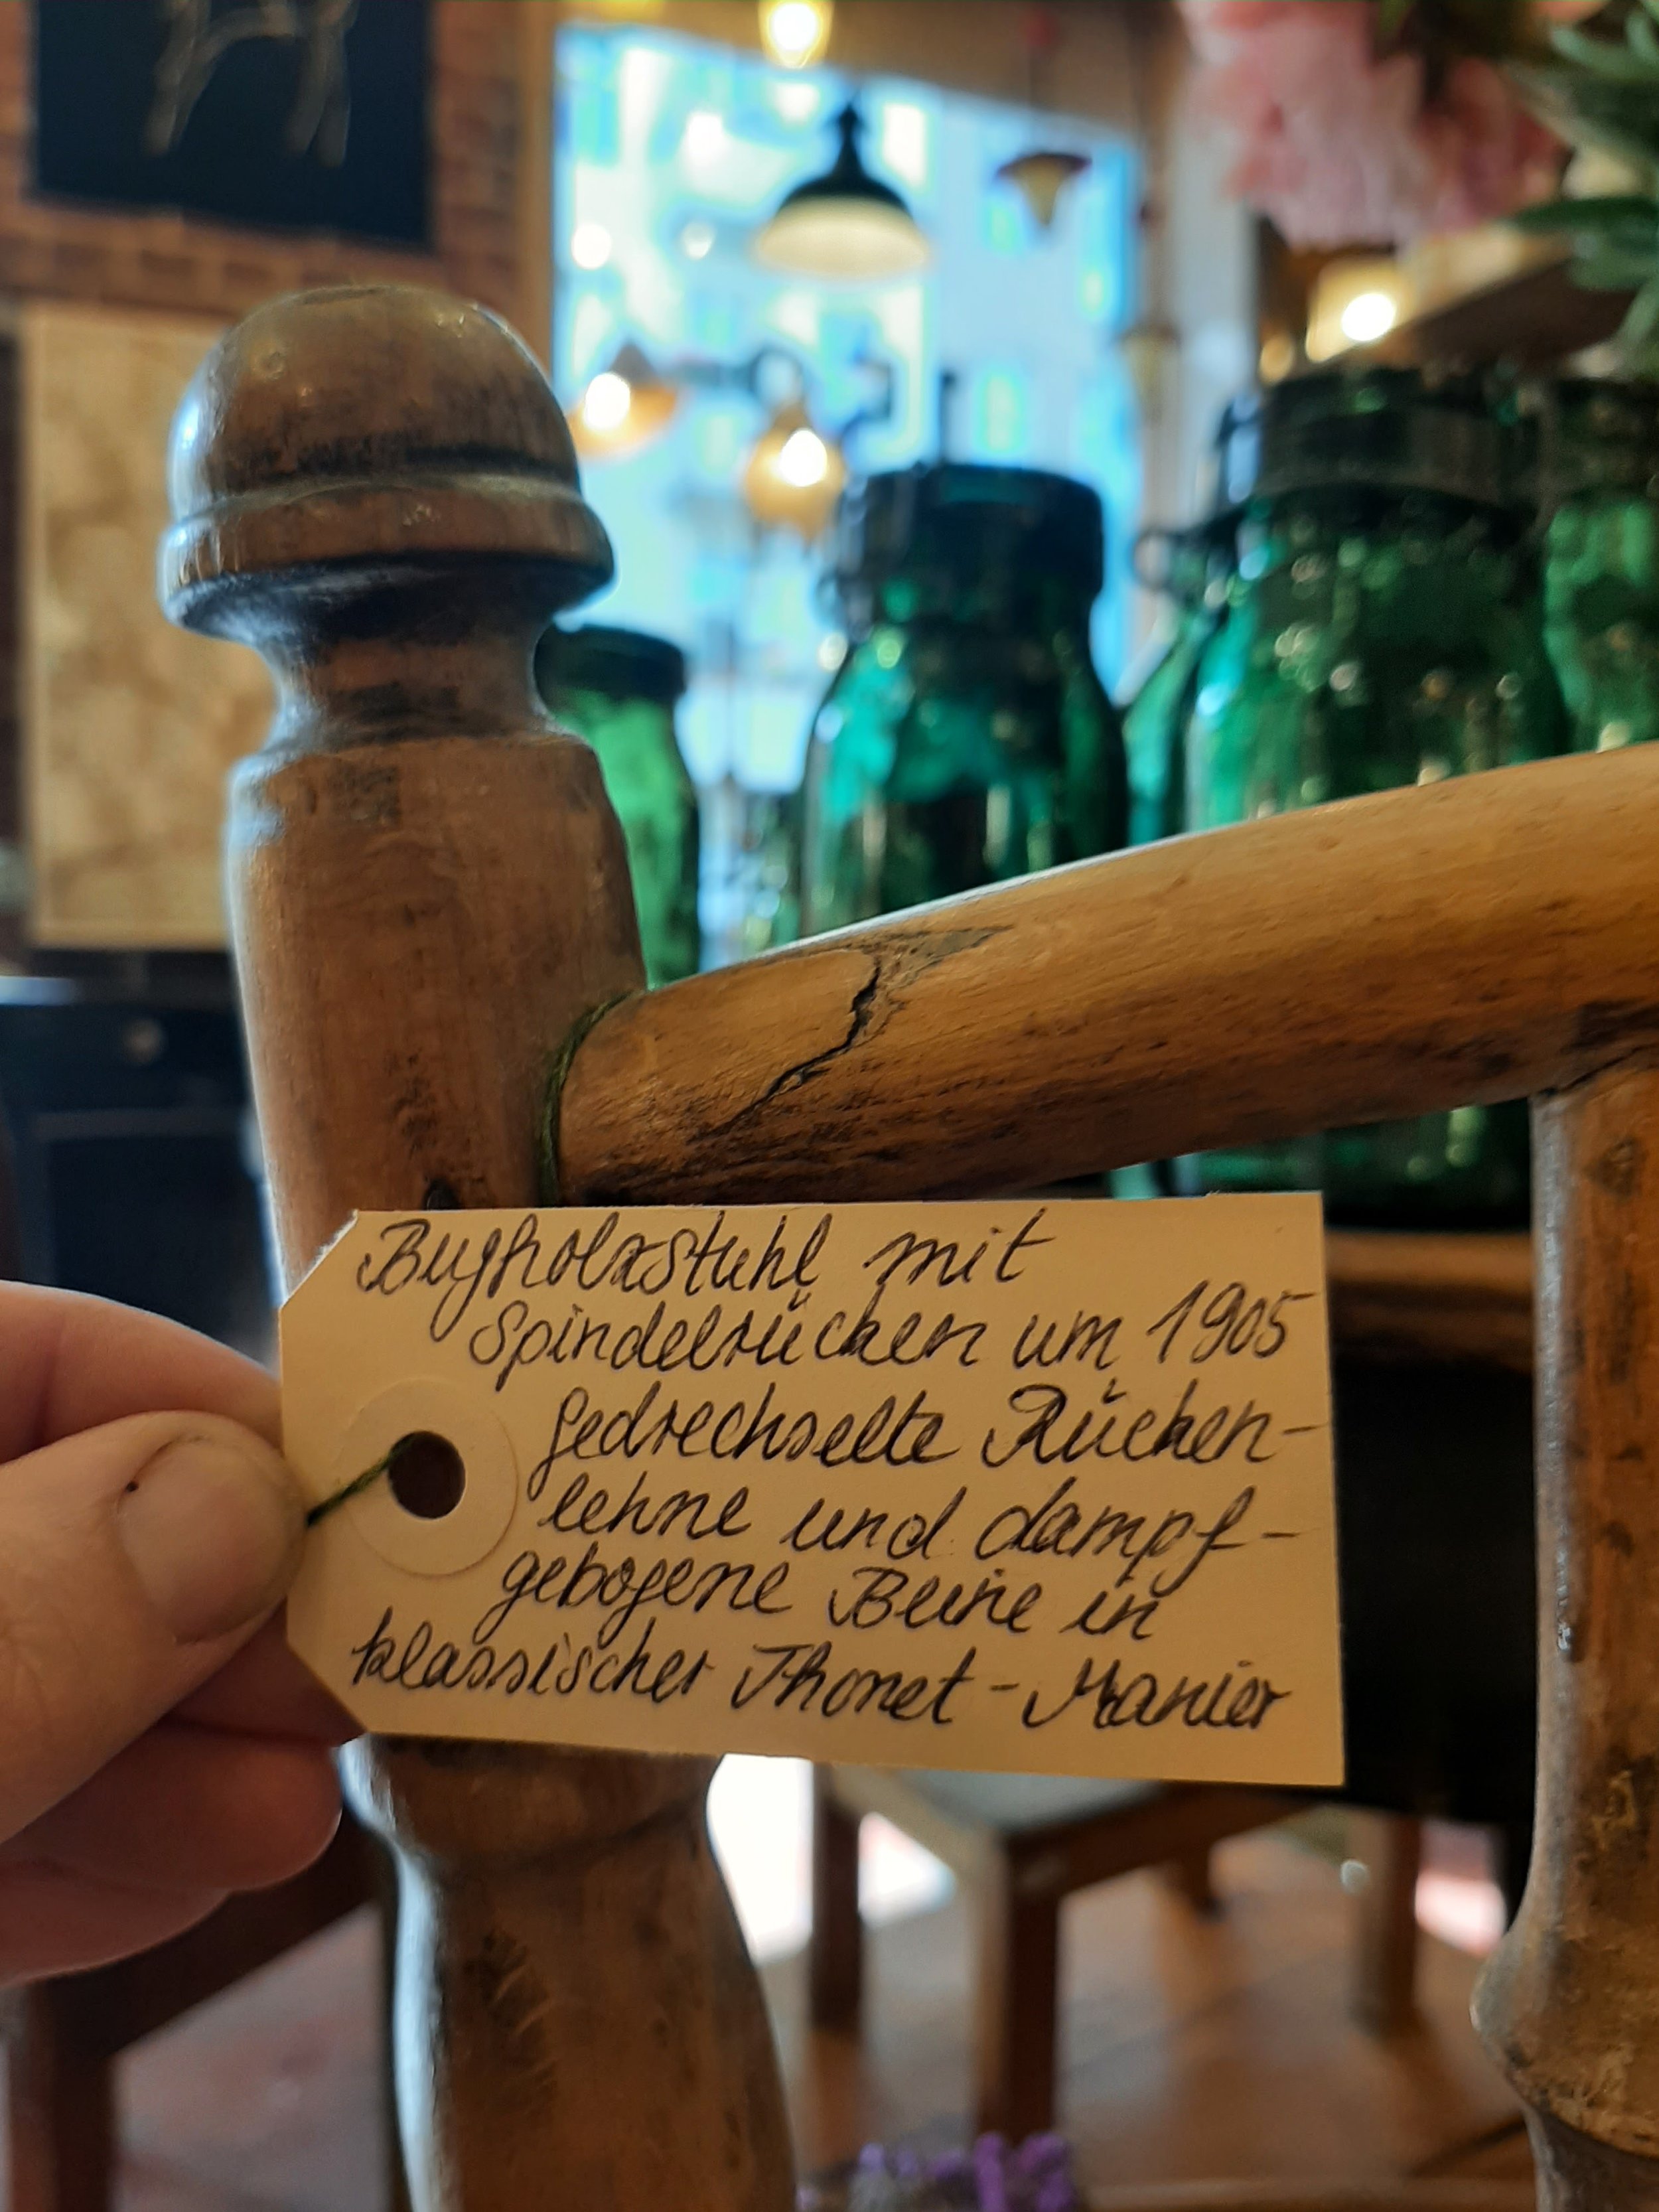 Bugholzstuhl mit
Spindelrücken um 1905
gedrechselte Rücken-
lehne und dampf-
gebogene Beine in
klassischer Thonet-Manier